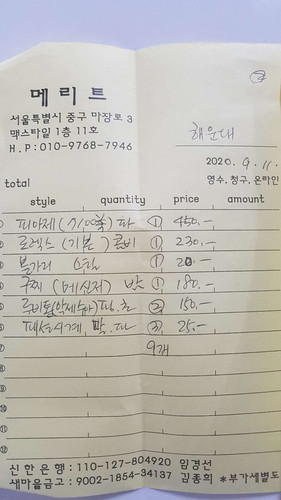 ②
메리트
서울특별시 중구 마장로 3
맥스타일 1층 11호
H.P:010-9768-7946
해운대
2020. 9. 11.
영수, 청구, 온라인
total
style quantity price amount
① 피아제 ( ) ① 450.-
② 로렉스 (기본) 콤비 ① 230.-
③ 불가리 ① 20.-
④ 구찌 (메신저) ① 180.-
⑤ ② 150.-
⑥ 패션시계, ③ 25.-
⑦ 9개
⑧
⑨
⑩
⑪
⑫
신한은행:110-127-804920 임경선
새마을금고:9002-1854-34137 김종희 *부가세별도